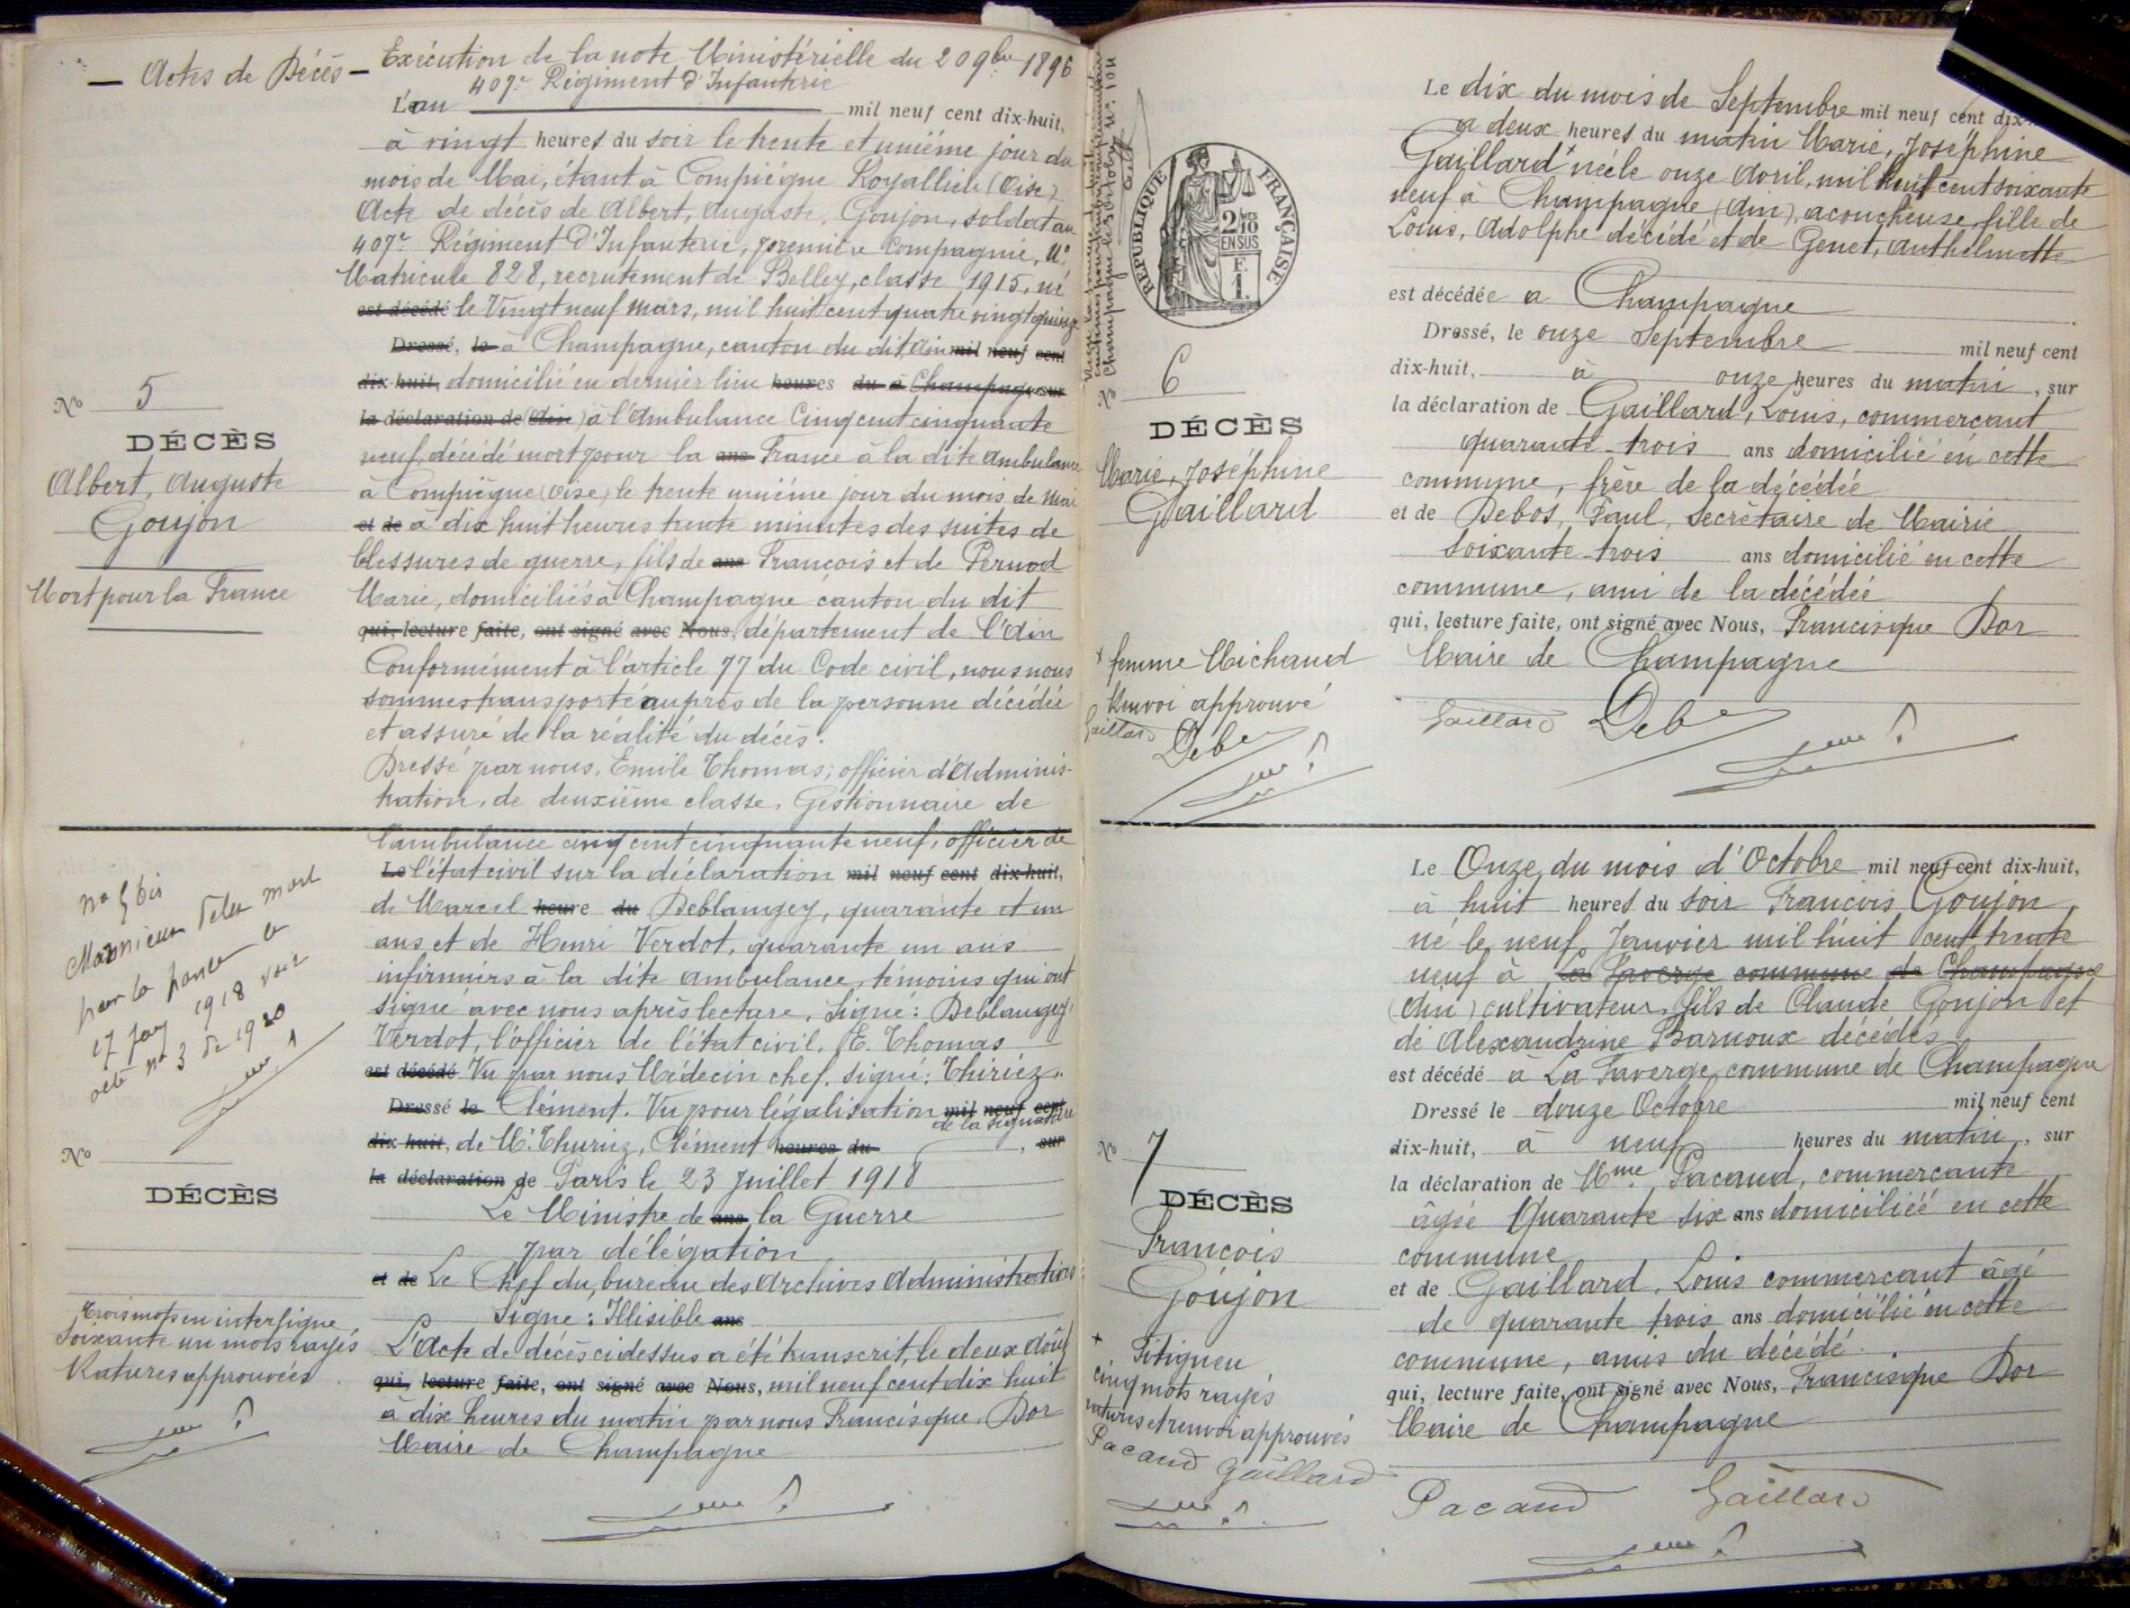 — Actes de Décès —
Exécution de la note Ministérielle du 20 9bre 1896
407e Régiment d'Infanterie
L'an mil neuf cent dix-huit,
à vingt heures du soir le trente et unième jour du
mois de Mai, étant à Compiègne Royallieu (Oise)
Acte de décès de Albert, Auguste, Goujon, soldat au
407e Régiment d'Infanterie, première Compagnie, No
Matricule 828, recrutement de Belley, classe 1915, né
est décédé le Vingt neuf Mars, mil huit cent quatre vingt quinze
Dressé, le à Champagne, canton du dit Ain mil neuf cent
dix-huit, domicilié en dernier lieu heures du à Champagne sur
la déclaration de (Ain) à l'Ambulance Cinq cent cinquante
neuf, décédé mort pour la ans France à la dite Ambulance
à Compiègne (Oise) le trente unième jour du mois de Mai
et de à dix huit heures trente minutes des suites de
blessures de guerre, fils de ans François et de Pernod
Marie, domiciliés à Champagne canton du dit
qui, lecture faite, ont signé avec Nous, département de l'Ain
Conformément à l'article 77 du Code civil, nous nous
sommes transporté auprès de la personne décédée
et assuré de la réalité du décès.
Dressé par nous, Emile Thomas, officier d'Adminis-
tration, de deuxième classe, Gestionnaire de
l'ambulance cinq cent cinquante neuf, officier de
Le l'état civil sur la déclaration mil neuf cent dix-huit,
de Marcel heure du Deblangey, quarante et un
ans et de Henri Verdot, quarante un ans
infirmiers à la dite ambulance, témoins qui ont
signé avec nous après lecture, Signé: Deblangey
Verdot, l'officier de l'état civil, E. Thomas
est décédé Vu par nous Médecin chef, signé: Thiriez
Dressé le Clément. Vu pour légalisation mil neuf cent
de la signature
dix-huit, de Mr Thuriez, Clément heures du , sur
la déclaration de Paris le 23 Juillet 1918
Le Ministre de ans la Guerre
par délégation
et de Le Chef du bureau des Archives Administratives
Signe: Illisible ans
L'Acte de décès ci dessus a été transcrit, le deux Août
qui, lecture faite, ont signé avec Nous, mil neuf cent dix huit
à dix heures du matin par nous Francisque Dor
Maire de Champagne
No 5
DÉCÈS
Albert, Auguste
Goujon
Mort pour la France
no 5 bis
mort
pour la france le
17 1918 voir
acte no 3 de 1920
No
DÉCÈS
Trois mots en interligne
Soixante un mots rayés
Ratures approuvées
RÉPUBLIQUE FRANÇAISE
2/10 EN SUS
F.
1.
No 6
DÉCÈS
Marie, Joséphine
Gaillard
x femme Michaud
Renvoi approuvé
Gaillard
Deb
Le dix du mois de Septembre mil neuf cent dix-
à deux heures du matin Marie, Joséphine
Gaillard x née le onze Avril, mil huit cent soixante
neuf à Champagne (Ain), acoucheuse, fille de
Louis, Adolphe décédé et de Genet, Anthelmette
est décédée a Champagne
Dressé, le onze Septembre mil neuf cent
dix-huit, à onze heures du matin, sur
la déclaration de Gaillard, Louis, commerçant
quarante-trois ans domicilié en cette
commune, frère de la décédée
et de Debos, Paul, Secrétaire de Mairie
soixante-trois ans domicilié en cette
commune, ami de la décédée
qui, lecture faite, ont signé avec Nous, Francisque Dor
Maire de Champagne
Gaillard Deb
No 7
DÉCÈS
François
Goujon
x Titigneu
cinq mots rayés
ratures et renvoi approuvés
Pacaud Gaillard
Le Onze du mois d'Octobre mil neuf cent dix-huit,
à huit heures du soir François Goujon
né le neuf Janvier mil huit cent trente
neuf à La Faverge commune de Champagne
(Ain) cultivateur, fils de Claude Goujon et
de Alexandrine Barnoux décédés
est décédé à La Faverge commune de Champagne
Dressé le douze Octobre mil neuf cent
dix-huit, à neuf heures du matin, sur
la déclaration de Mme Pacaud, commerçante
âgée Quarante six ans domiciliée en cette
commune
et de Gaillard, Louis commerçant âgé
de quarante trois ans domicilié en cette
commune, amis du décédé.
qui, lecture faite, ont signé avec Nous, Francisque Dor
Maire de Champagne
Pacaud Gaillard